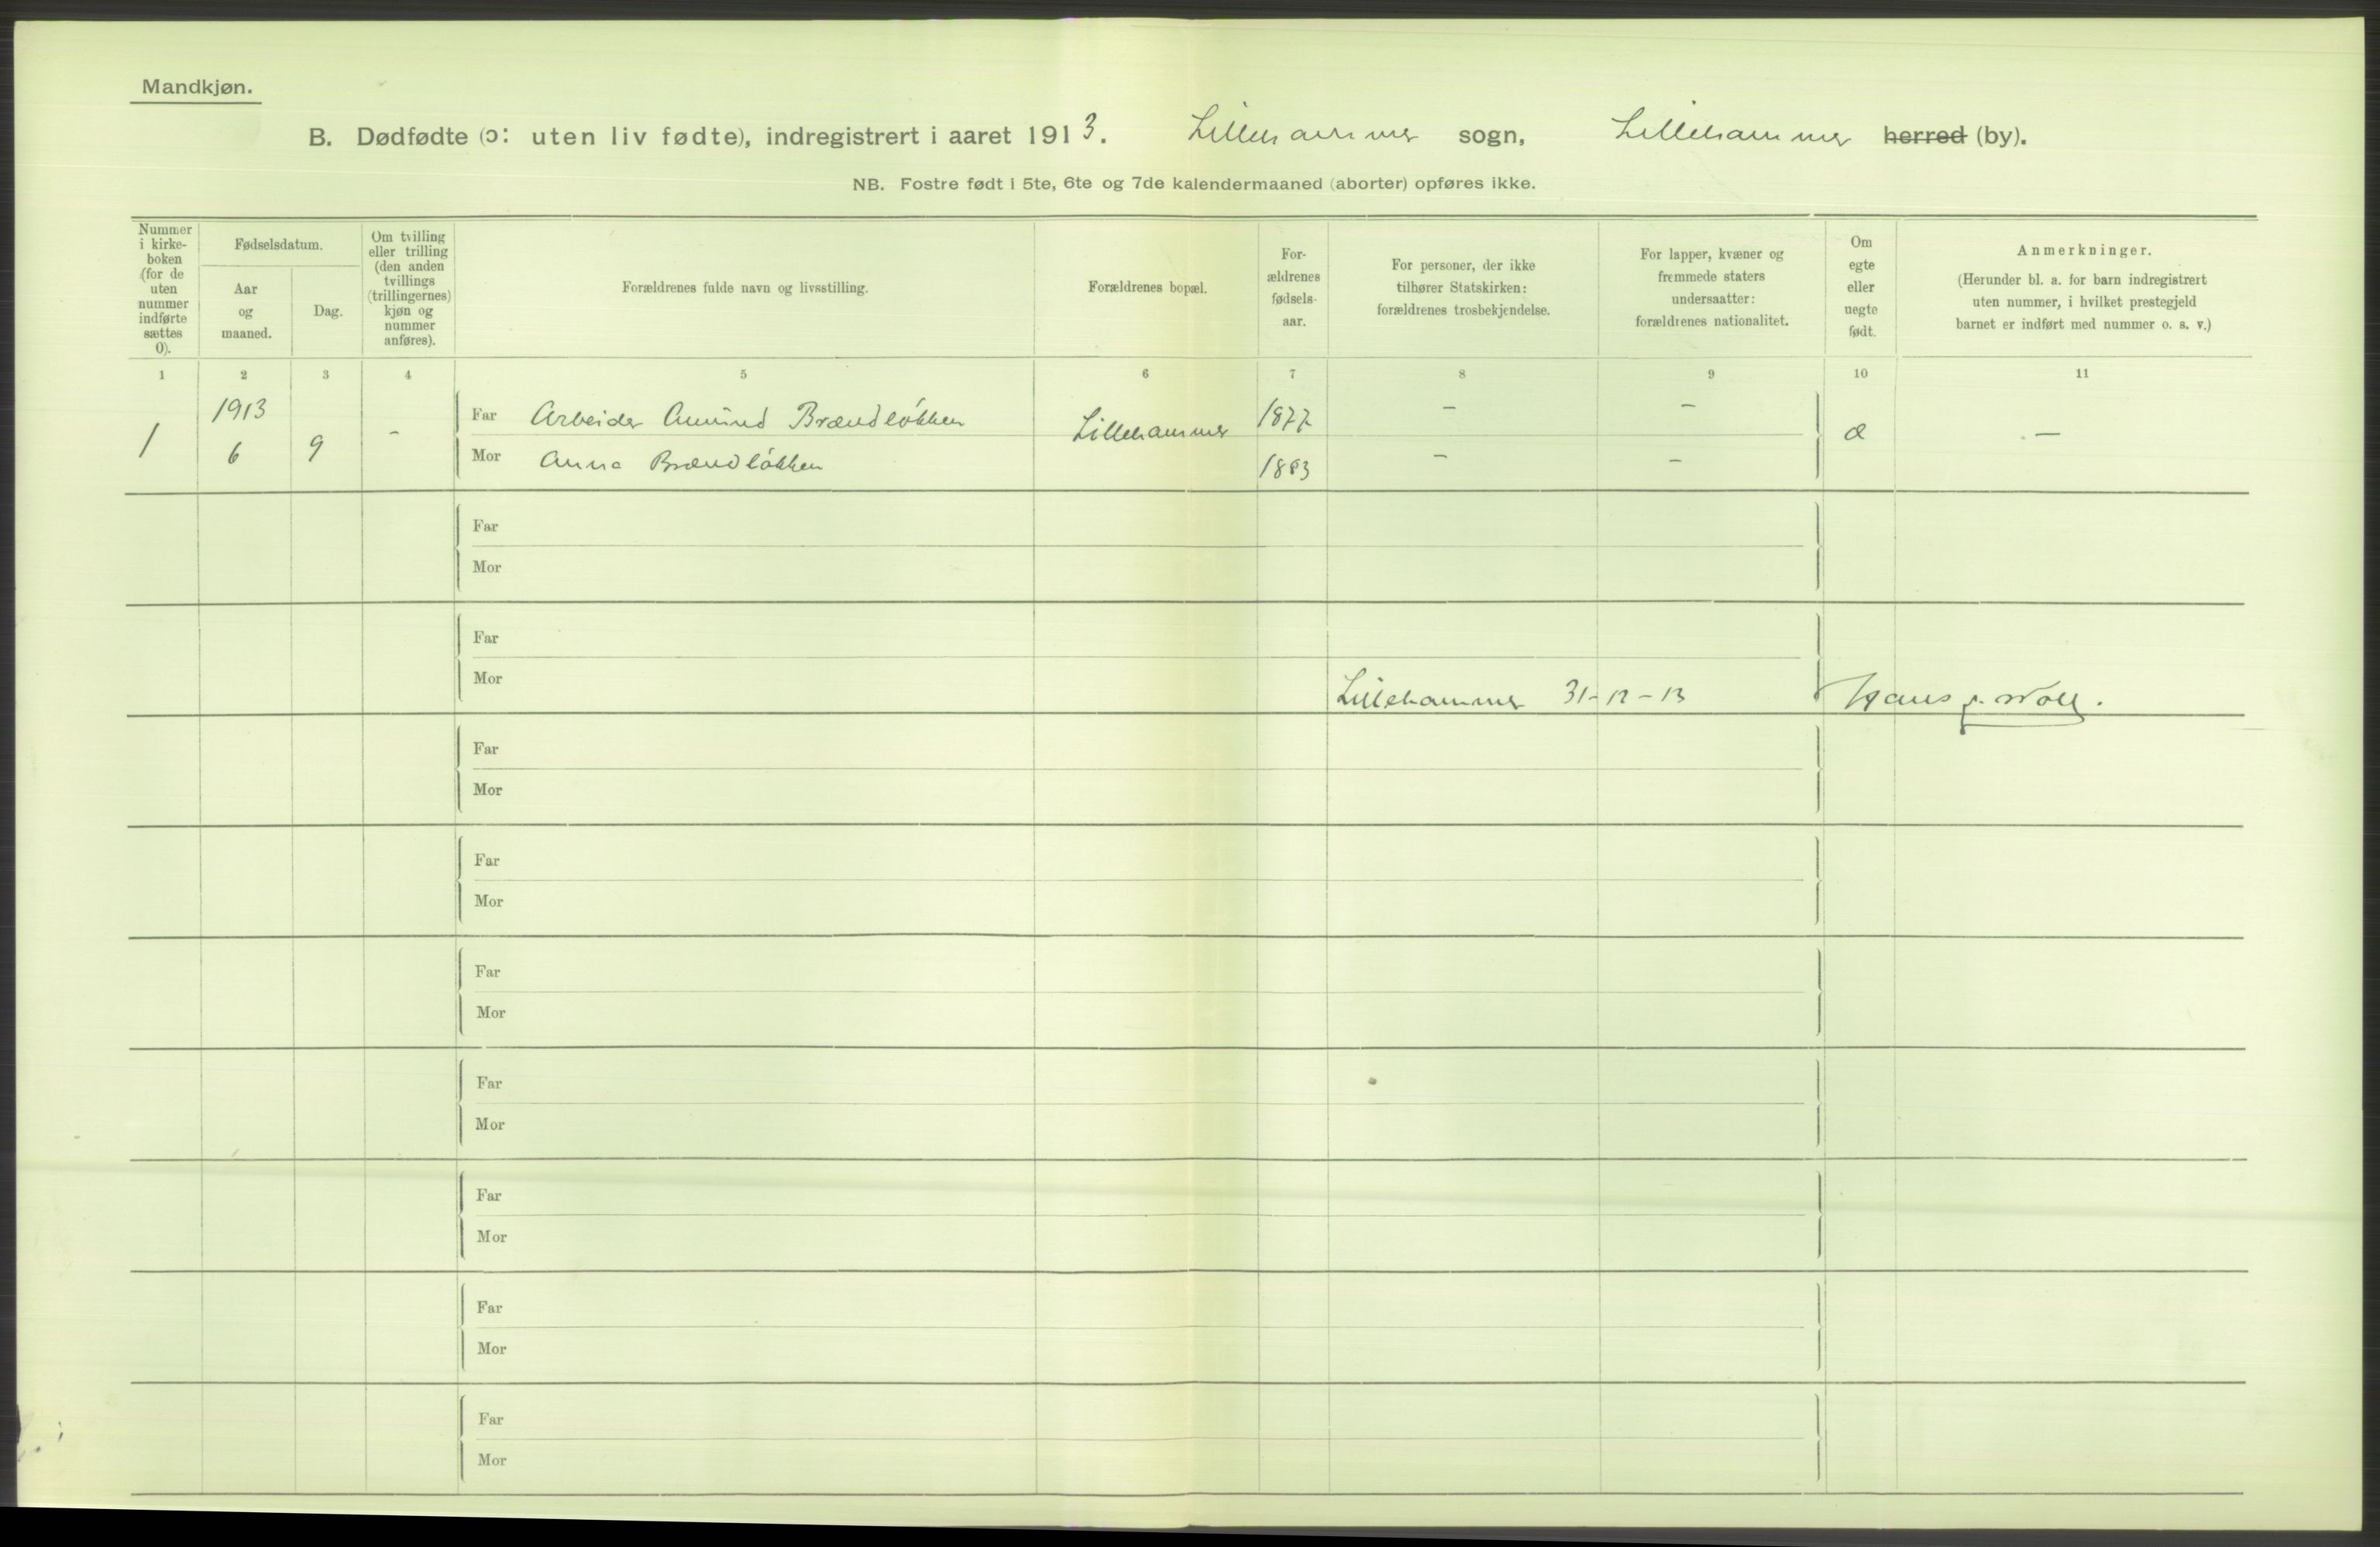 Mandkjøn.
B. Dødfødte (ɔ: uten liv fødte), indregistrert i aaret 1913. Lillehammer sogn, Lillehammer herred (by).
NB. Fostre født i 5te, 6te og 7de kalendermaaned (aborter) opføres ikke.
Nummer
i kirke-
boken
(for de
uten
nummer
indførte
sættes
0).
Fødselsdatum.
Aar
og
maaned.
Dag.
Om tvilling
eller trilling
(den anden
tvillings
(trillingernes)
kjøn og
nummer
anføres).
Forældrenes fulde navn og livsstilling.
Forældrenes bopæl.
For-
ældrenes
fødsels-
aar.
For personer, der ikke
tilhører Statskirken:
forældrenes trosbekjendelse.
For lapper, kvæner og
fremmede staters
undersaatter:
forældrenes nationalitet.
Om
egte
eller
uegte
født.
Anmerkninger.
(Herunder bl. a. for barn indregistrert
uten nummer, i hvilket prestegjeld
barnet er indført med nummer o. s. v.)
1 2 3 4 5 6 7 8 9 10 11
1913 Far Arbeider Amund Brændløkken 1877 – –
1 6 9 – Lillehammer —
Mor Anna Brændløkken 1883 – –
Far
Mor
Far
Mor Lillehammer 31-12-13 Hans
Far
Mor
Far
Mor
Far
Mor
Far
Mor
Far
Mor
Far
Mor
Far
Mor